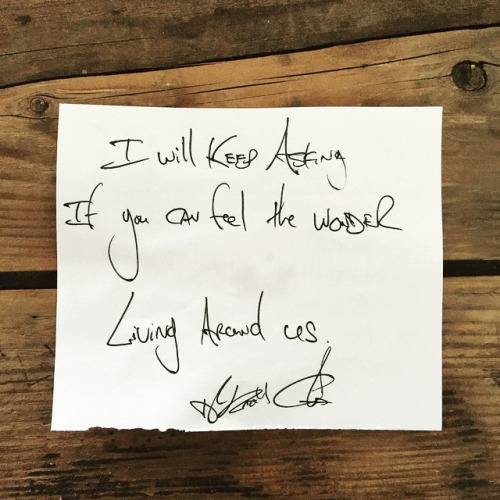 I will KEEP ASKing
If you CAN feel the WONDER
Living Around us.